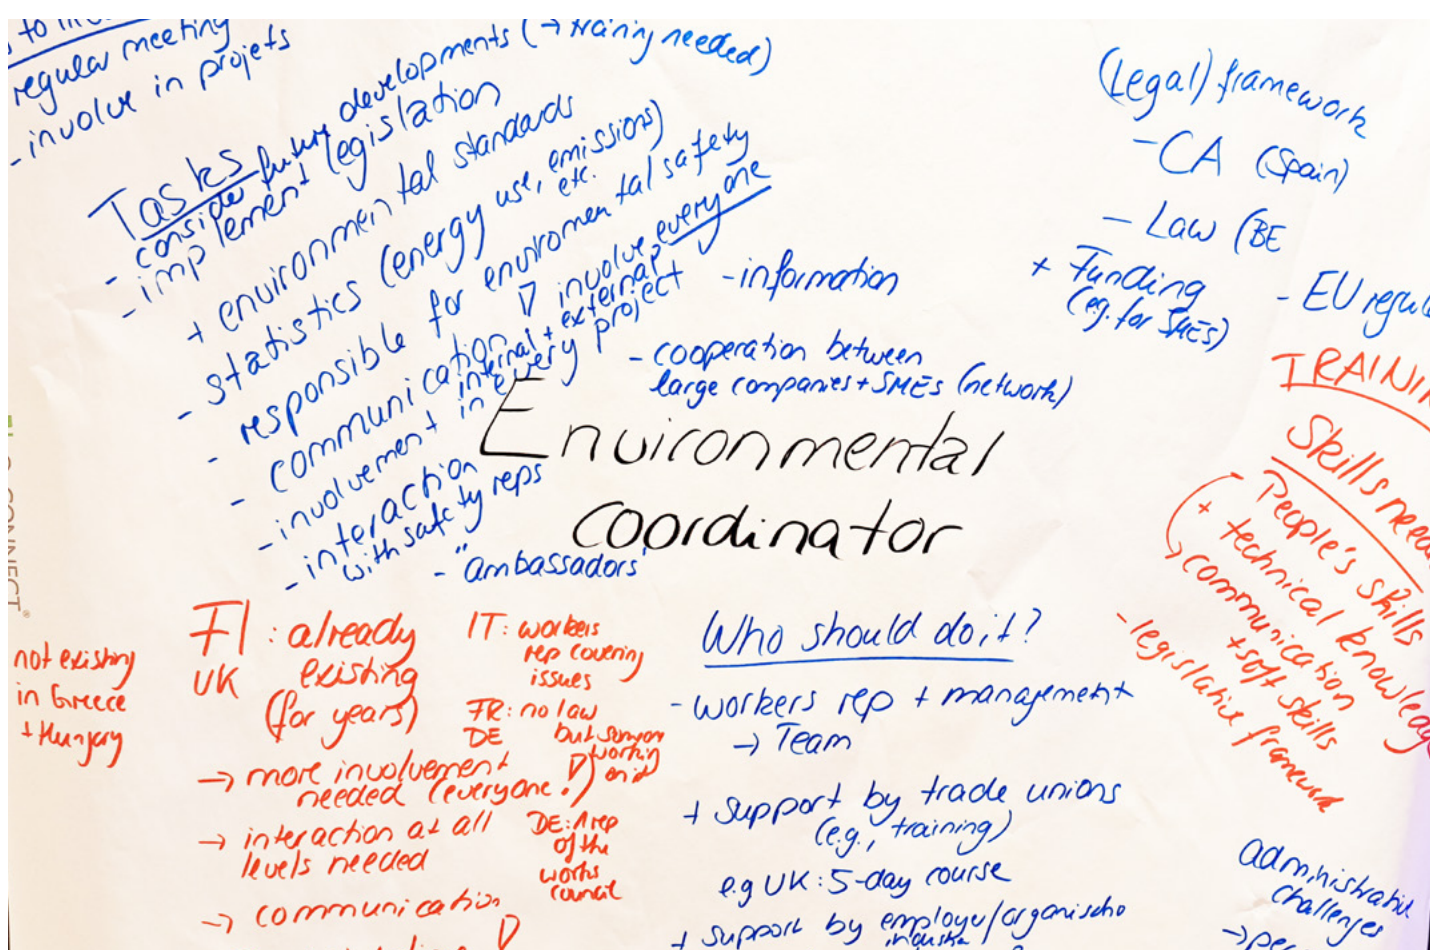 regular meeting
- involve in projets
Tasks
- consider future developments (→ training needed)
- implement legislation
+ environmental standards
- statistics (energy use, emissions)
etc.
- responsible for enviromental safety
- communication ▽ involve everyone
internal + external
- involvement in every project
- interaction
with safety reps
- "ambassadors"
- information
- cooperation between
large companies + SMEs (network)
Environmental
coordinator
(Legal) framework
- CA (Spain)
- Law (BE
+ Funding
(eg. for SMEs)
- EU regul
TRAININ
Skills need
- People's skills
+ technical knowledge
→ communication
+ soft skills
- legislative framework
not existing
in Greece
+ Hungary
FI : already
UK existing
(for years)
→ more involvement
needed (everyone!)
→ interaction at all
levels needed
→ communication
IT: workers
rep covering
issues
FR: no law
DE but someone
working
on it
DE: 1 rep
of the
works
council
Who should do it?
- workers rep + management
→ Team
+ support by trade unions
(e.g., training)
e.g UK: 5-day course
+ support by
administrative
challenges
CONNECT®